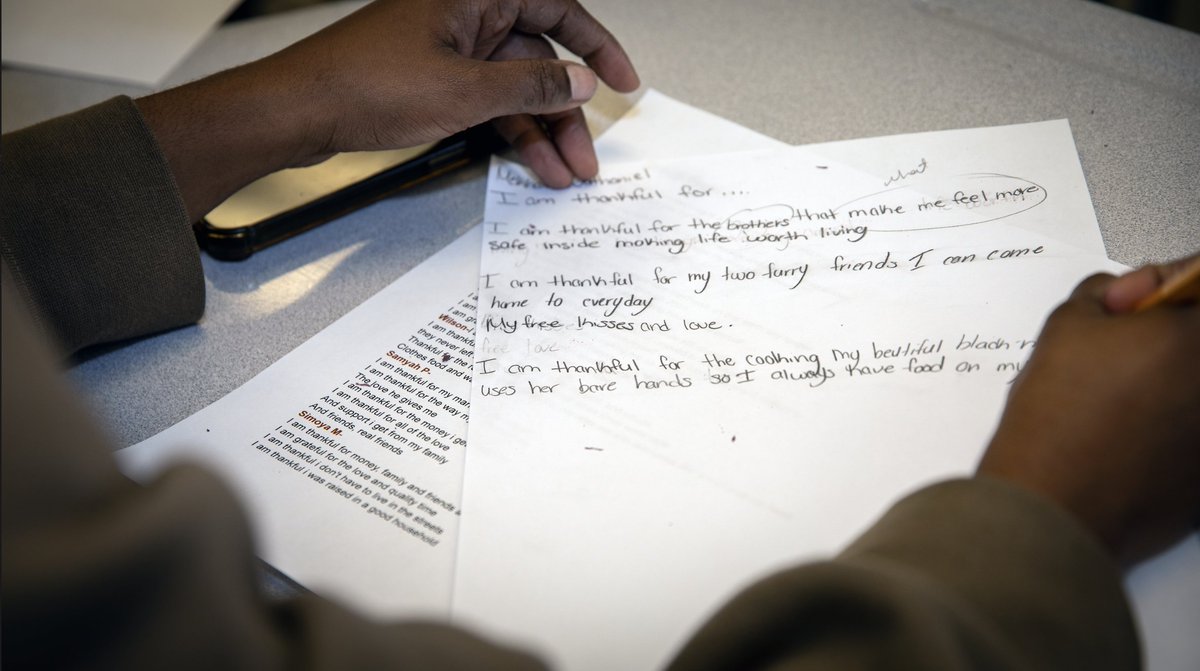 I am thankful for....
what
I am thankful for the brothers that make me feel more
safe inside making life worth living
I am thankful for my two furry friends I can come
home to everyday
My free kisses and love.
free love
I am thankful for the cooking my beutiful black
uses her bare hands so I always have food on my
Wilson-
I am thankful
they never left
Thankful for the
Clothes food and
Samyah P-
I am thankful for my
I am thankful for the way
The love he gives me
I am thankful for the money i get
I am thankful for all of the love
And support i get from my family
And friends, real friends
Simoya M-
I am thankful for money, family and friends
I am grateful for the love and quality time
I am thankful i don't have to live in the streets
I am thankful i was raised in a good household